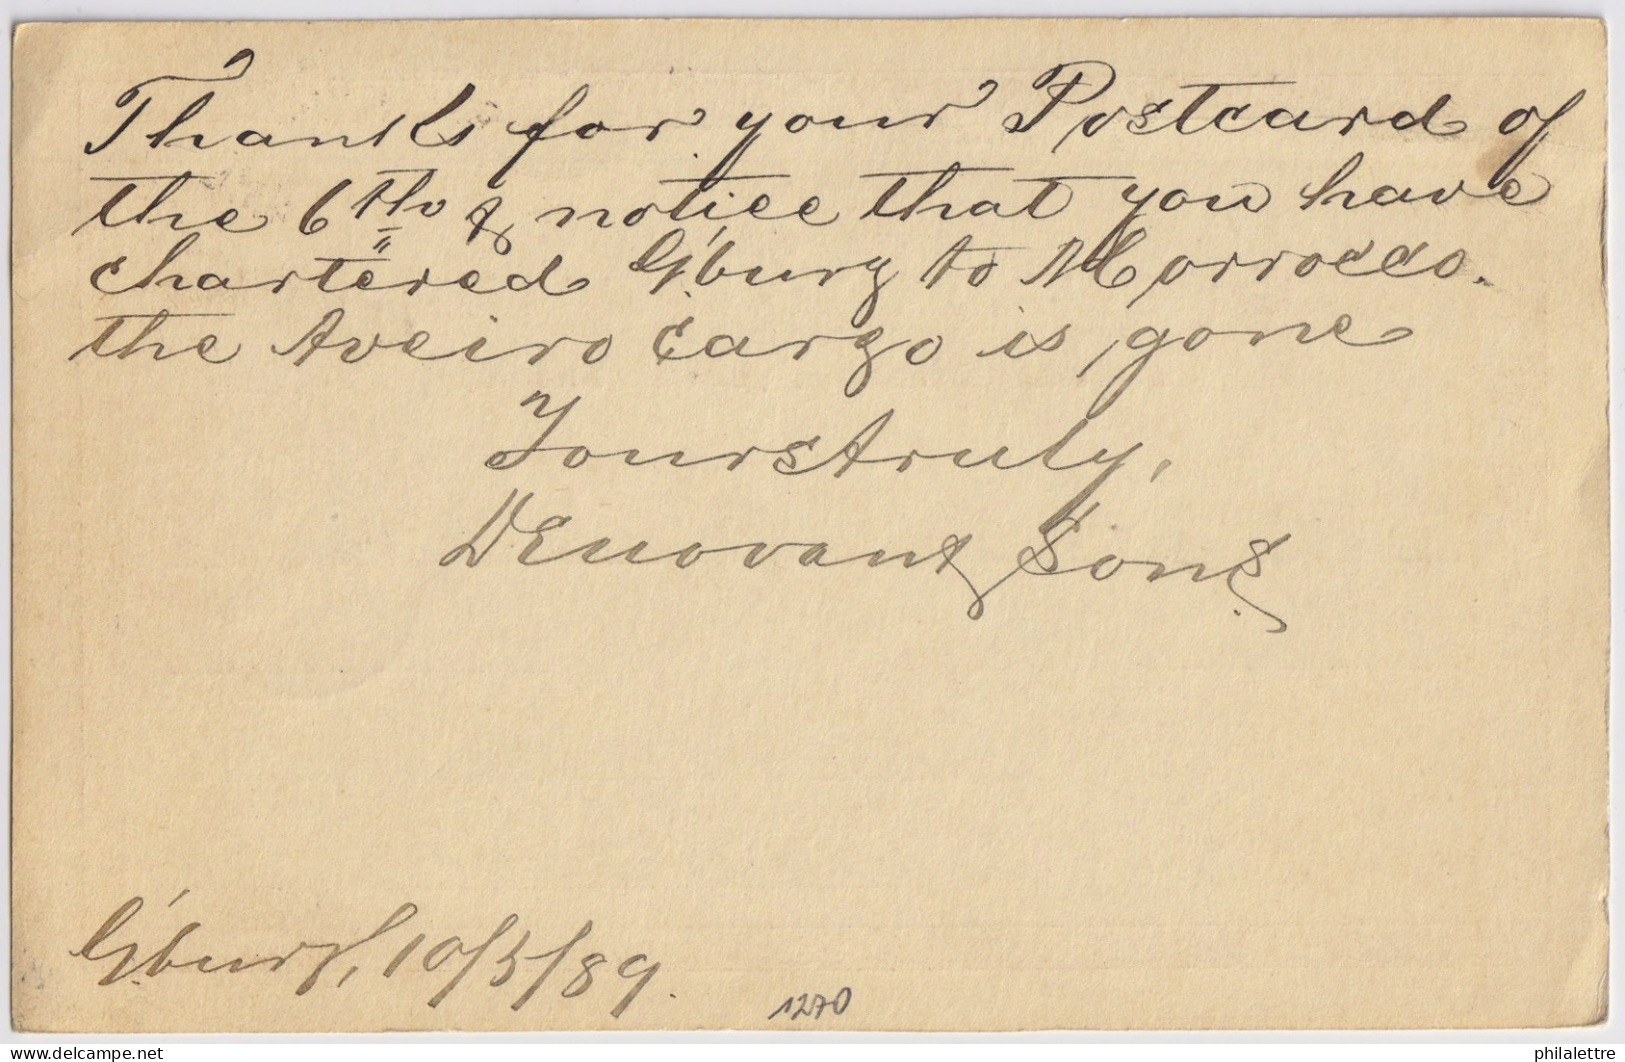 Thanks for your Postcard of
the 6th & notice that you have
chartered G'burg to Morrocco.
the Aveiro cargo is gone
Yours truly,
Denovan & Sons
G'burg, 10/5/89.
1270
delcampe.net
philalettre